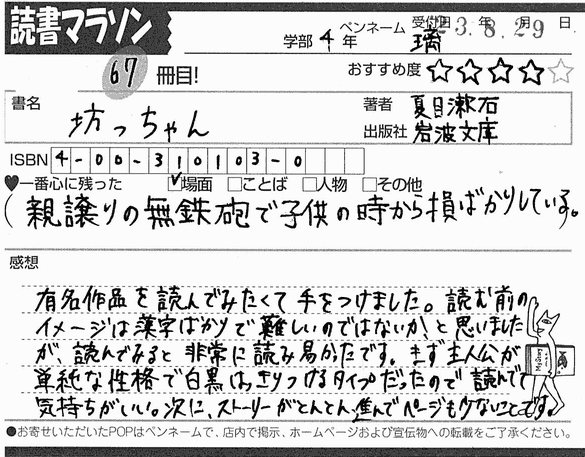 読書マラソン
学部 4年 ペンネーム 璃 受付日 23年 8月 29日
67 冊目!
おすすめ度 ☆☆☆☆☆
書名 坊っちゃん
著者 夏目漱石
出版社 岩波文庫
ISBN 4-00-310103-0
♥一番心に残った ☑場面 □ことば □人物 □その他
(親譲りの無鉄砲で子供の時から損ばかりしている。
感想
有名作品を読んでみたくて手をつけました。読む前の
イメージは漢字ばかりで難しいのではないか、と思いました
が、読んでみると非常に読み易かったです。まず主人公が
単純な性格で白黒はっきりつけるタイプだったので読んでて
気持ちがいい。次に、ストーリーがとんとん進んでページも少ないことです。
●お寄せいただいたPOPはペンネームで、店内で掲示、ホームページおよび宣伝物への転載をご了承ください。